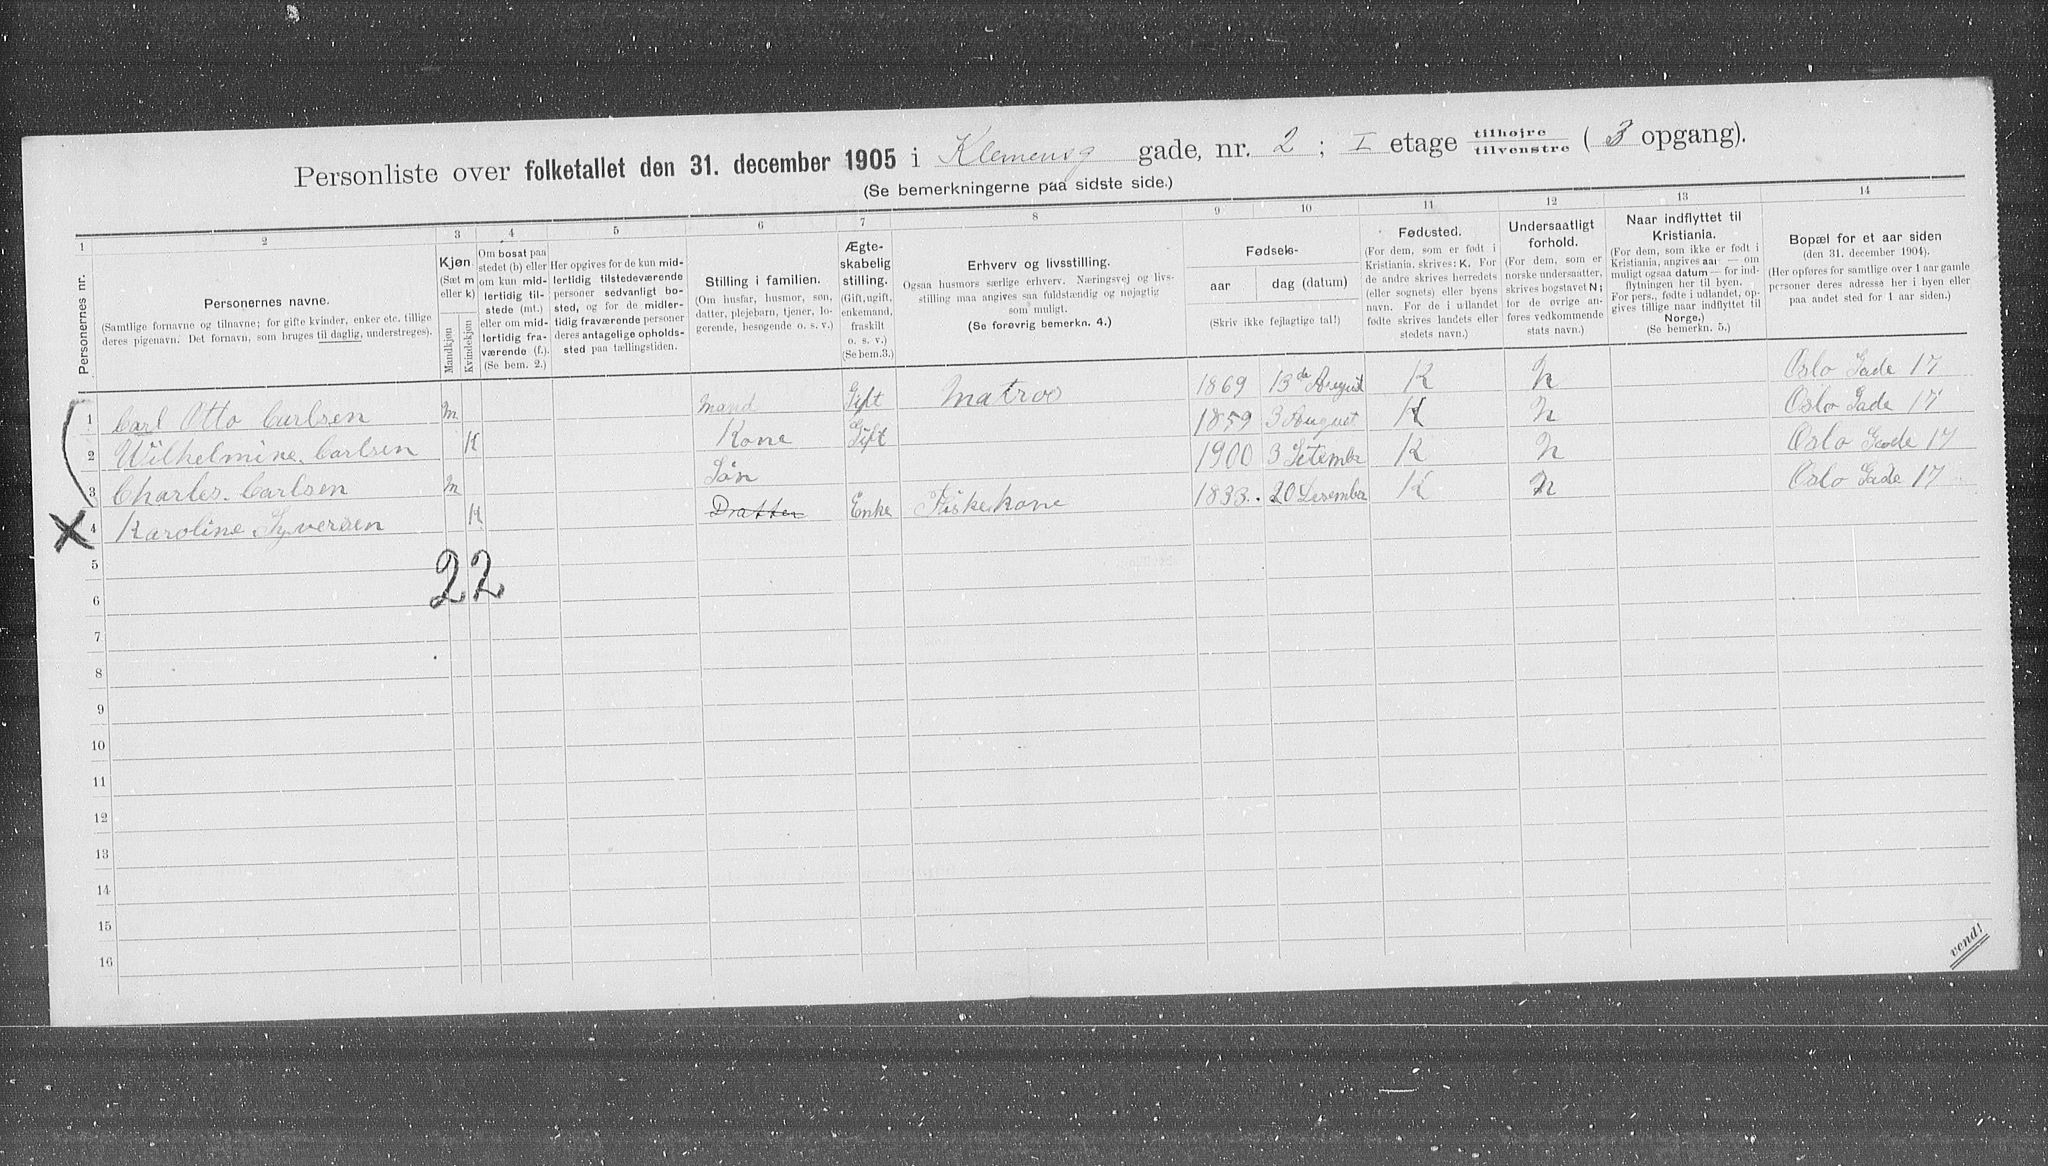 Personliste over folketallet den 31. december 1905 i Klemensg gade, nr. 2 ; I etage tilhøjre tilvenstre ( 3 opgang).
(Se bemerkningerne paa sidste side.)
1 2 3 4 5 6 7 8 9 10 11 12 13 14
Personernes nr.
Personernes navne.
(Samtlige fornavne og tilnavne; for gifte kvinder, enker etc. tillige
deres pigenavn. Det fornavn, som bruges til daglig, understreges).
Kjøn.
(Sæt m
eller k)
Mandkjøn
Kvindekjøn
Om bosat paa
stedet (b) eller
om kun mid-
lertidig til-
stede (mt.)
eller om mid-
lertidig fra-
værende (f.).
(Se bem. 2.)
Her opgives for de kun mid-
lertidig tilstedeværende
personer sedvanligt bo-
sted, og for de midler-
tidig fraværende personer
deres antagelige opholds-
sted paa tællingstiden.
Stilling i familien.
(Om husfar, husmor, søn,
datter, plejebarn, tjener, lo-
gerende, besøgende o. s. v.)
Ægte-
skabelig
stilling.
(Gift, ugift,
enkemand,
fraskilt
o. s. v.)
(Se bem.3.)
Erhverv og livsstilling.
Ogsaa husmors særlige erhverv. Næringsvej og livs-
stilling maa angives saa fuldstændig og nøjagtig
som muligt.
(Se forøvrig bemerkn. 4.)
Fødsels-
aar
dag (datum)
(Skriv ikke fejlagtige tal!)
Fødested.
(For dem, som er født i
Kristiania, skrives: K. For
de andre skrives herredets
(eller sognets) eller byens
navn. For de i udlandet
fødte skrives landets eller
stedets navn.)
Undersaatligt
forhold.
(For dem, som er
norske undersaatter,
skrives bogstavet N;
for de øvrige an-
føres vedkommende
stats navn.)
Naar indflyttet til
Kristiania.
(For dem, som ikke er født i
Kristiania, angives aar — om
muligt ogsaa datum — for ind-
flytningen her til byen.
For pers., fødte i udlandet, op-
gives tillige naar indflyttet til
Norge.)
(Se bemerkn. 5.)
Bopæl for et aar siden
(den 31. december 1904).
(Her opføres for samtlige over 1 aar gamle
personer deres adresse her i byen eller
paa andet sted for 1 aar siden.)
1 Carl Otto Carlsen m Mand Gift Matros 1869 13de August K N Oslo Gade 17
2 Wilhelmine. Carlsen K Kone Gift 1859 3 August K N Oslo Gade 17
3 Charles. Carlsen m Søn 1900 3 Setember K N Oslo Gade 17
4 Karoline Syversen K Datter Enke Fiskekone 1833. 20 Desember K N Oslo Gade 17
22
5
6
7
8
9
10
11
12
13
14
15
16
vend!